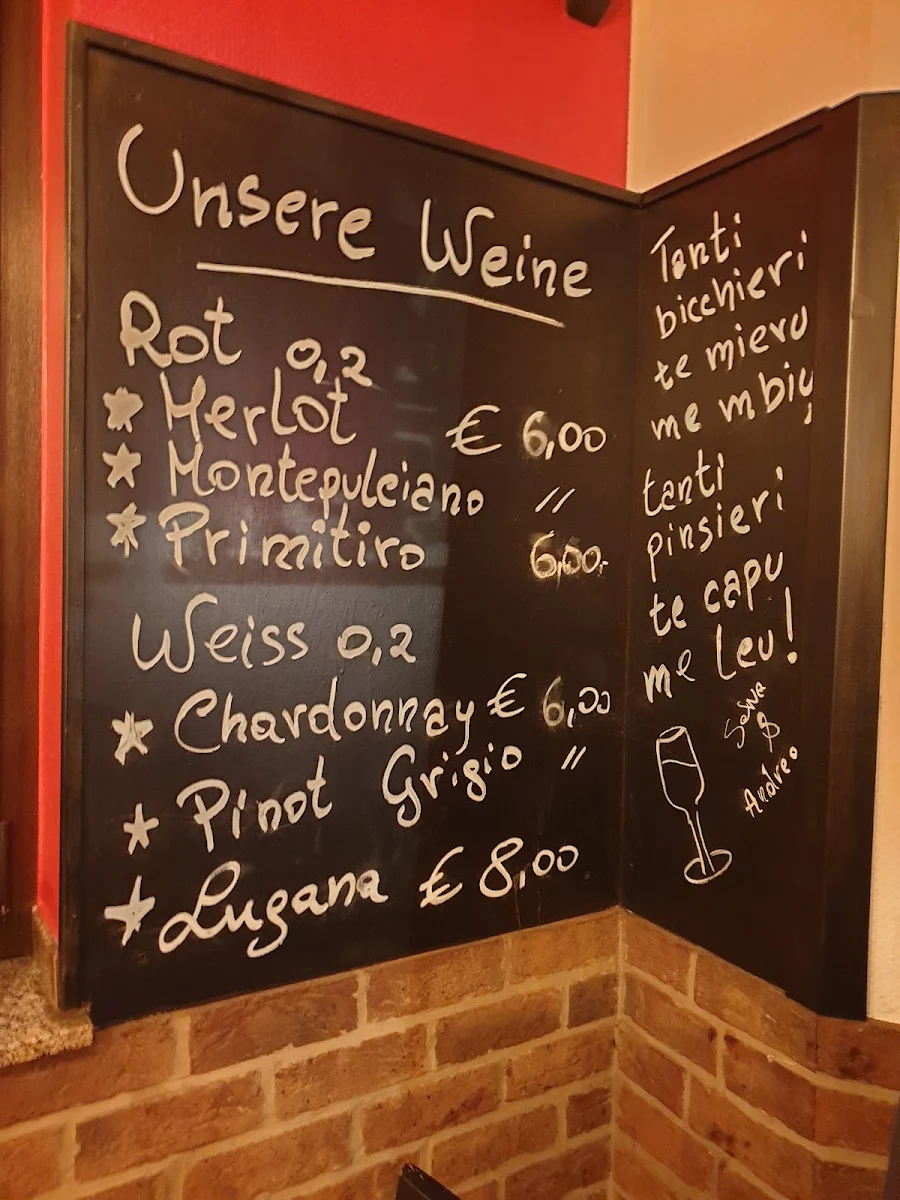 Unsere Weine
Rot 0,2
* Merlot € 6,00
* Montepulciano //
* Primitivo 6,00.
Weiss 0,2
* Chardonnay € 6,00
* Pinot Grigio //
* Lugana € 8,00
Tanti
bicchieri
te mieru
me mbiu
tanti
pinsieri
te capu
me leu!
&
Andrea